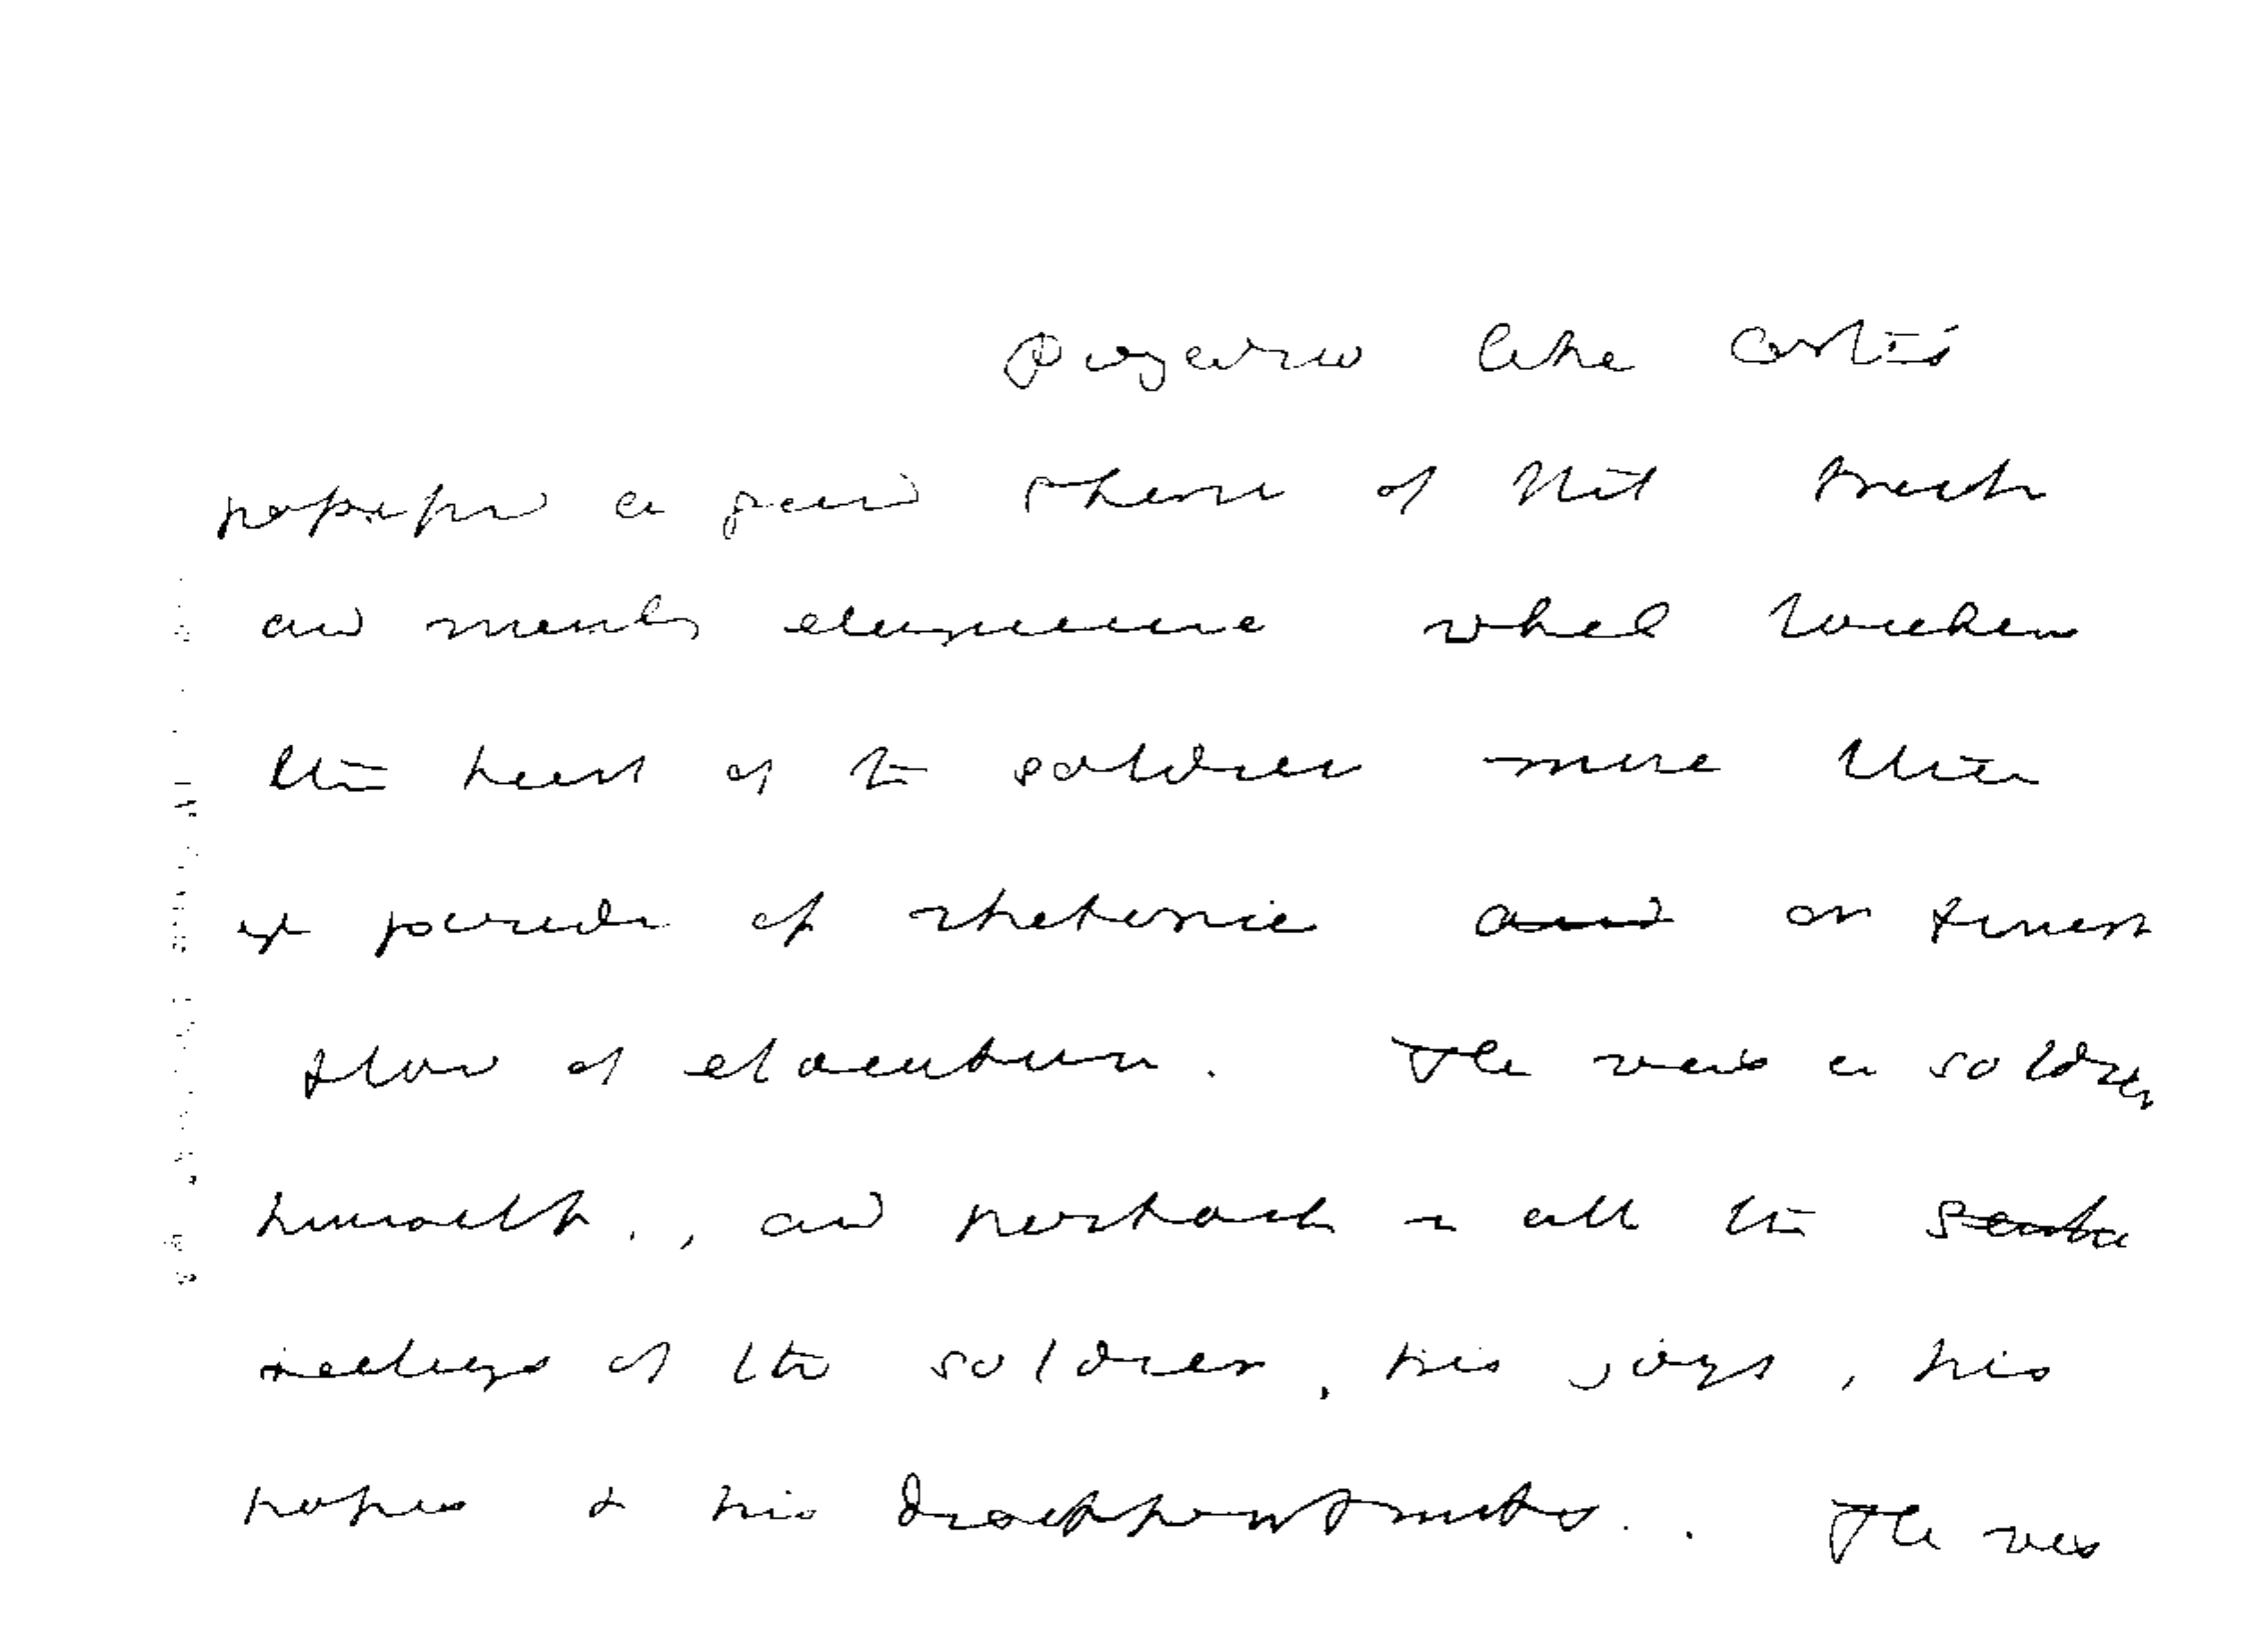 Pizarro like Cortés
possessed a great share of that frank
and manly eloquence which touches
the heart of the soldier more than
the parade of rhetoric and or finest
flow of elocution. He was a soldier
himself, and partook in all the
feelings of the soldier, his joys, his
hopes & his disappointments. He was